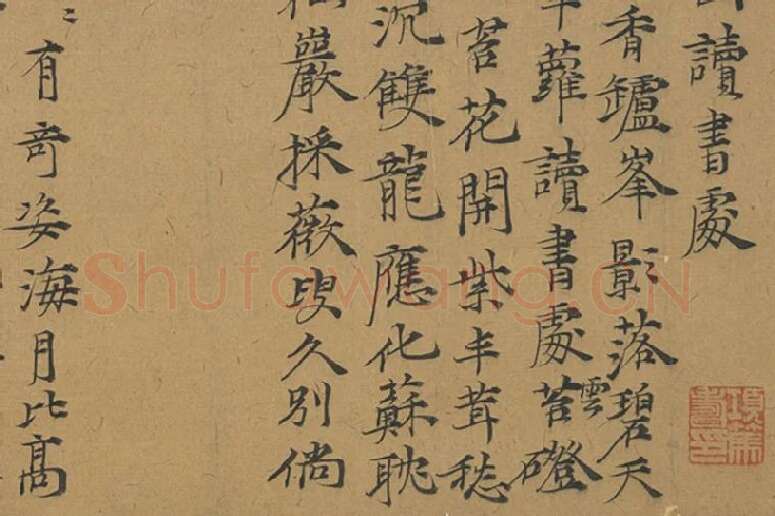 讀書處
香鑪峯影落碧天
蘿讀書處苔雲磴
花開紫丰茸愁
沉雙龍應化蘇耽
巖採薇叟久別倘
有奇姿海月比高
Shufawang.CN